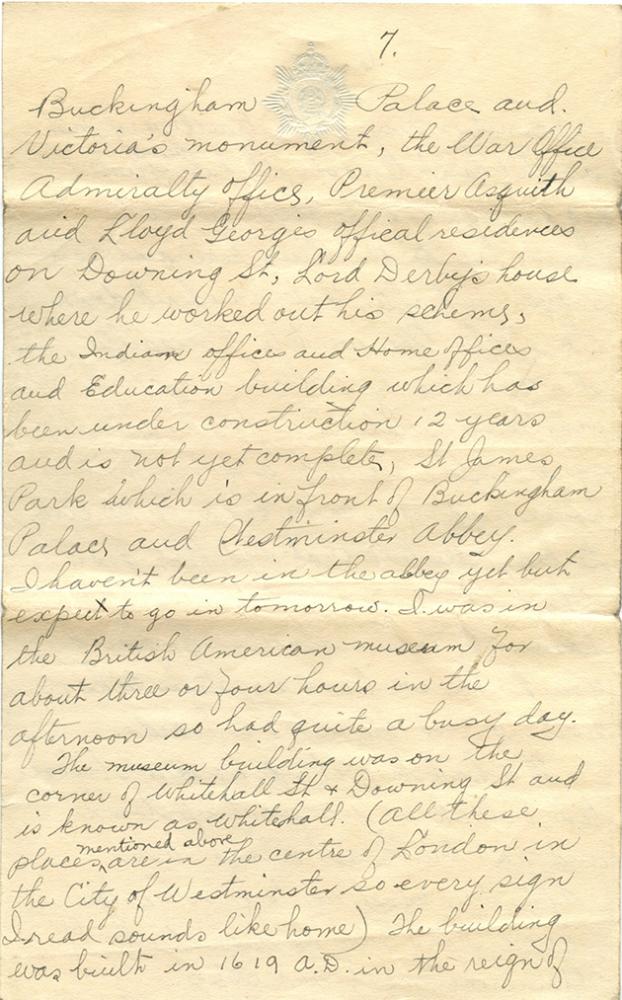 7.
Buckingham Palace and.
Victoria's monument, the War Office
Admiralty office, Premier Asquith
and Lloyd Georges offical residences
on Downing St, Lord Derby's house
where he worked out his scheme,
the Indian offices and Home offices
and Education building which has
been under construction 12 years
and is not yet complete, St James
Park which is in front of Buckingham
Palace and Westminster Abbey.
I haven't been in the abbey yet but
expect to go in tomorrow. I was in
the British American museum for
about three or four hours in the
afternoon so had quite a busy day.
The museum building was on the
corner of Whitehall St & Downing St and
is known as Whitehall. (All these
places mentioned above are in the centre of London in
the City of Westminster so every sign
I read sounds like home) The building
was built in 1619 A.D. in the reign of